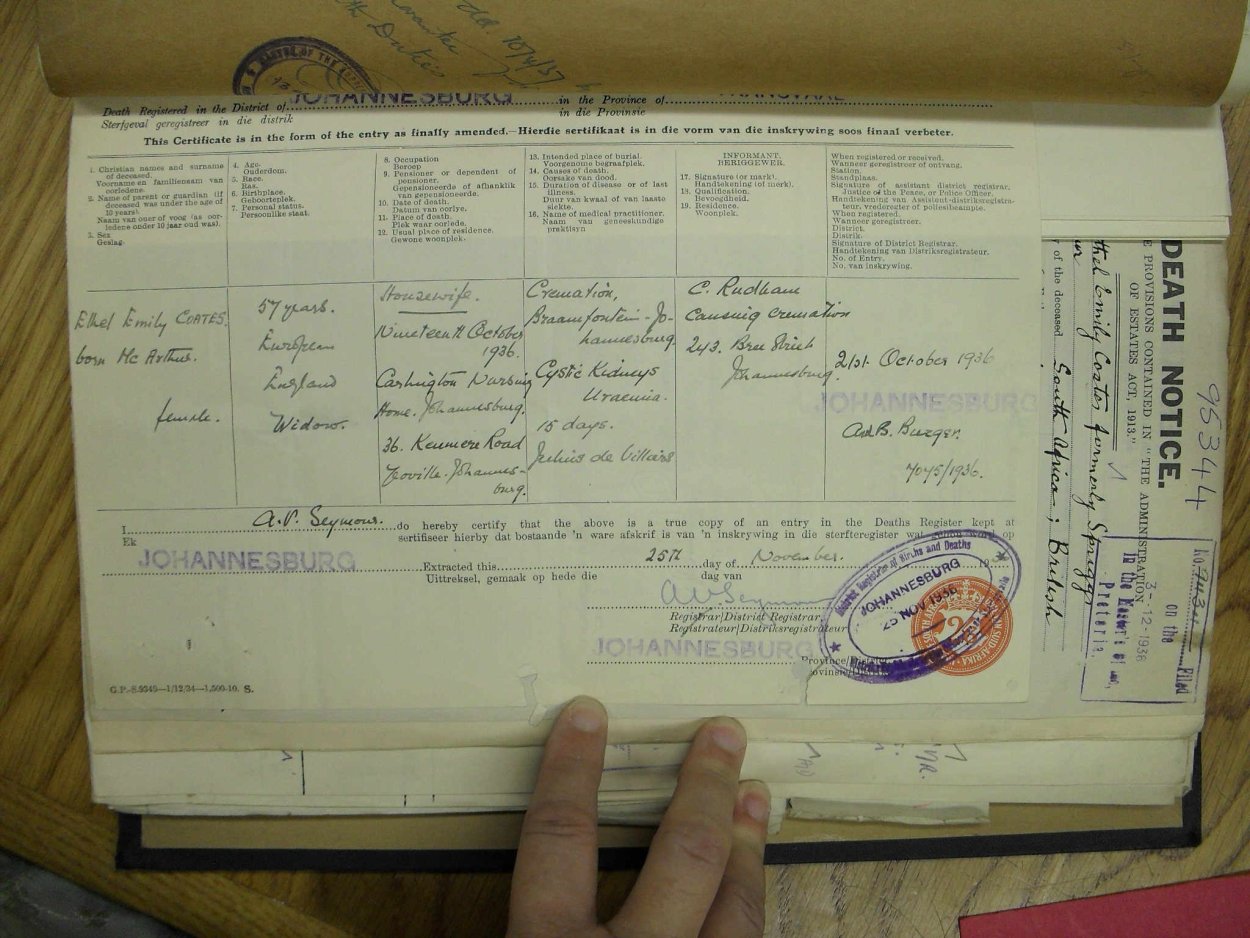 Duties
MASTER OF THE
JOHANNESBURG
Death Registered in the District of in the Province of
Sterfgeval geregistreer in die distrik in die Provinsie
This Certificate is in the form of the entry as finally amended.—Hierdie sertifikaat is in die vorm van die inskrywing soos finaal verbeter.
1. Christian names and surname of deceased.
Voorname en familienaam van oorledene.
2. Name of parent or guardian (if deceased was under the age of 10 years).
Naam van ouer of voog (as oorledene onder 10 jaar oud was).
3. Sex
Geslag.
4. Age.
Ouderdom.
5. Race.
Ras.
6. Birthplace.
Geboorteplek.
7. Personal status.
Persoonlike staat.
8. Occupation
Beroep
9. Pensioner or dependent of pensioner.
Gepensioneerde of afhanklik van gepensioneerde.
10. Date of death.
Datum van oorlye.
11. Place of death.
Plek waar oorlede.
12. Usual place of residence.
Gewone woonplek.
13. Intended place of burial.
Voorgenome begraafplek.
14. Causes of death.
Oorsake van dood.
15. Duration of disease or of last illness.
Duur van kwaal of van laaste siekte.
16. Name of medical practitioner.
Naam van geneeskundige praktisyn
INFORMANT.
BERIGGEWER.
17. Signature (or mark).
Handtekening (of merk).
18. Qualification.
Bevoegdheid.
19. Residence.
Woonplek.
When registered or received.
Wanneer geregistreer of ontvang.
Station.
Standplaas.
Signature of assistant district registrar, Justice of the Peace, or Police Officer.
Handtekening van Assistent-distriksregistrateur, vrederegter of polisiebeampte.
When registered.
Wanneer geregistreer.
District.
Distrik.
Signature of District Registrar.
Handtekening van Distriksregistrateur.
No. of Entry.
No. van inskrywing.
Ethel Emily COATES.
born McArthur.
female.
57 years.
European
England
Widow.
Housewife.
Nineteenth October
1936.
Carshington Nursing
Home. Johannesburg.
36. Kenmere Road
Yeoville. Johannes-
burg.
Cremation,
Braamfontein-Jo-
hannesburg.
Cystic Kidneys
Uraemia.
15 days.
Julius de Villiers
C. Rudhane
Causing Cremation
243. Bree Street
Johannesburg.
21st. October 1936
JOHANNESBURG
A.d.B. Burger.
7045/1936.
I A.V. Seymour. do hereby certify that the above is a true copy of an entry in the Deaths Register kept at
Ek sertifiseer hierby dat bostaande 'n ware afskrif is van 'n inskrywing in die sterfteregister wat gehou word op
JOHANNESBURG Extracted this 25th day of November.
Uittreksel, gemaak op hede die dag van
A.V. Seymour
Registrar/District Registrar,
Registrateur/Distriksregistrateur
JOHANNESBURG
Province/District
District Registrar of Births and Deaths
JOHANNESBURG
25 NOV 1936
G.P.-S.9349—1/12/34—1,500-10. S.
95344
DEATH NOTICE.
PROVISIONS CONTAINED IN "THE ADMINISTRATION
OF ESTATES ACT, 1913."
Emily Coates formerly Spriggs
of the deceased South Africa; British
Filed
on the
3-12-1936
in the Master's Office,
Pretoria.